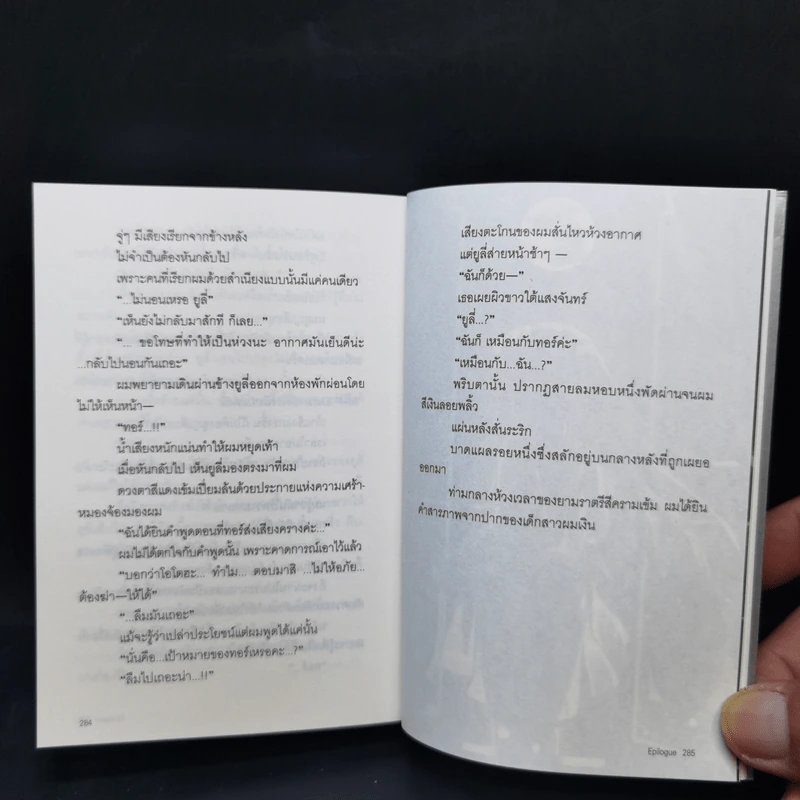 จู่ๆ มีเสียงเรียกจากข้างหลัง
ไม่จำเป็นต้องหันกลับไป
เพราะคนที่เรียกผมด้วยสำเนียงแบบนั้นมีแค่คนเดียว
“...ไม่นอนเหรอ ยูลี่”
“เห็นยังไม่กลับมาสักที ก็เลย...”
“... ขอโทษที่ทำให้เป็นห่วงนะ อากาศมันเย็นดีน่ะ
...กลับไปนอนกันเถอะ”
ผมพยายามเดินผ่านข้างยูลี่ออกจากห้องพักผ่อนโดย
ไม่ให้เห็นหน้า—
“ทอร์...!!”
น้ำเสียงหนักแน่นทำให้ผมหยุดเท้า
เมื่อหันกลับไป เห็นยูลี่มองตรงมาที่ผม
ดวงตาสีแดงเข้มเปี่ยมล้นด้วยประกายแห่งความเศร้า-
หมองจ้องมองผม
“ฉันได้ยินคำพูดตอนที่ทอร์ส่งเสียงครางค่ะ...”
ผมไม่ได้ตกใจกับคำพูดนั้น เพราะคาดการณ์เอาไว้แล้ว
“บอกว่าโอโตฮะ... ทำไม... ตอบมาสิ ...ไม่ให้อภัย...
ต้องฆ่า—ให้ได้”
“...ลืมมันเถอะ”
แม้จะรู้ว่าเปล่าประโยชน์แต่ผมพูดได้แค่นั้น
“นั่นคือ...เป้าหมายของทอร์เหรอคะ...?”
“ลืมไปเถอะน่า...!!”
284
เสียงตะโกนของผมสั่นไหวห้วงอากาศ
แต่ยูลี่ส่ายหน้าช้าๆ —
“ฉันก็ด้วย—”
เธอเผยผิวขาวใต้แสงจันทร์
“ยูลี่...?”
“ฉันก็ เหมือนกับทอร์ค่ะ”
“เหมือนกับ...ฉัน...?”
พริบตานั้น ปรากฏสายลมหอบหนึ่งพัดผ่านจนผม
สีเงินลอยพลิ้ว
แผ่นหลังสั่นระริก
บาดแผลรอยหนึ่งซึ่งสลักอยู่บนกลางหลังที่ถูกเผยอ
ออกมา
ท่ามกลางห้วงเวลาของยามราตรีสีครามเข้ม ผมได้ยิน
คำสารภาพจากปากของเด็กสาวผมเงิน
Epilogue 285